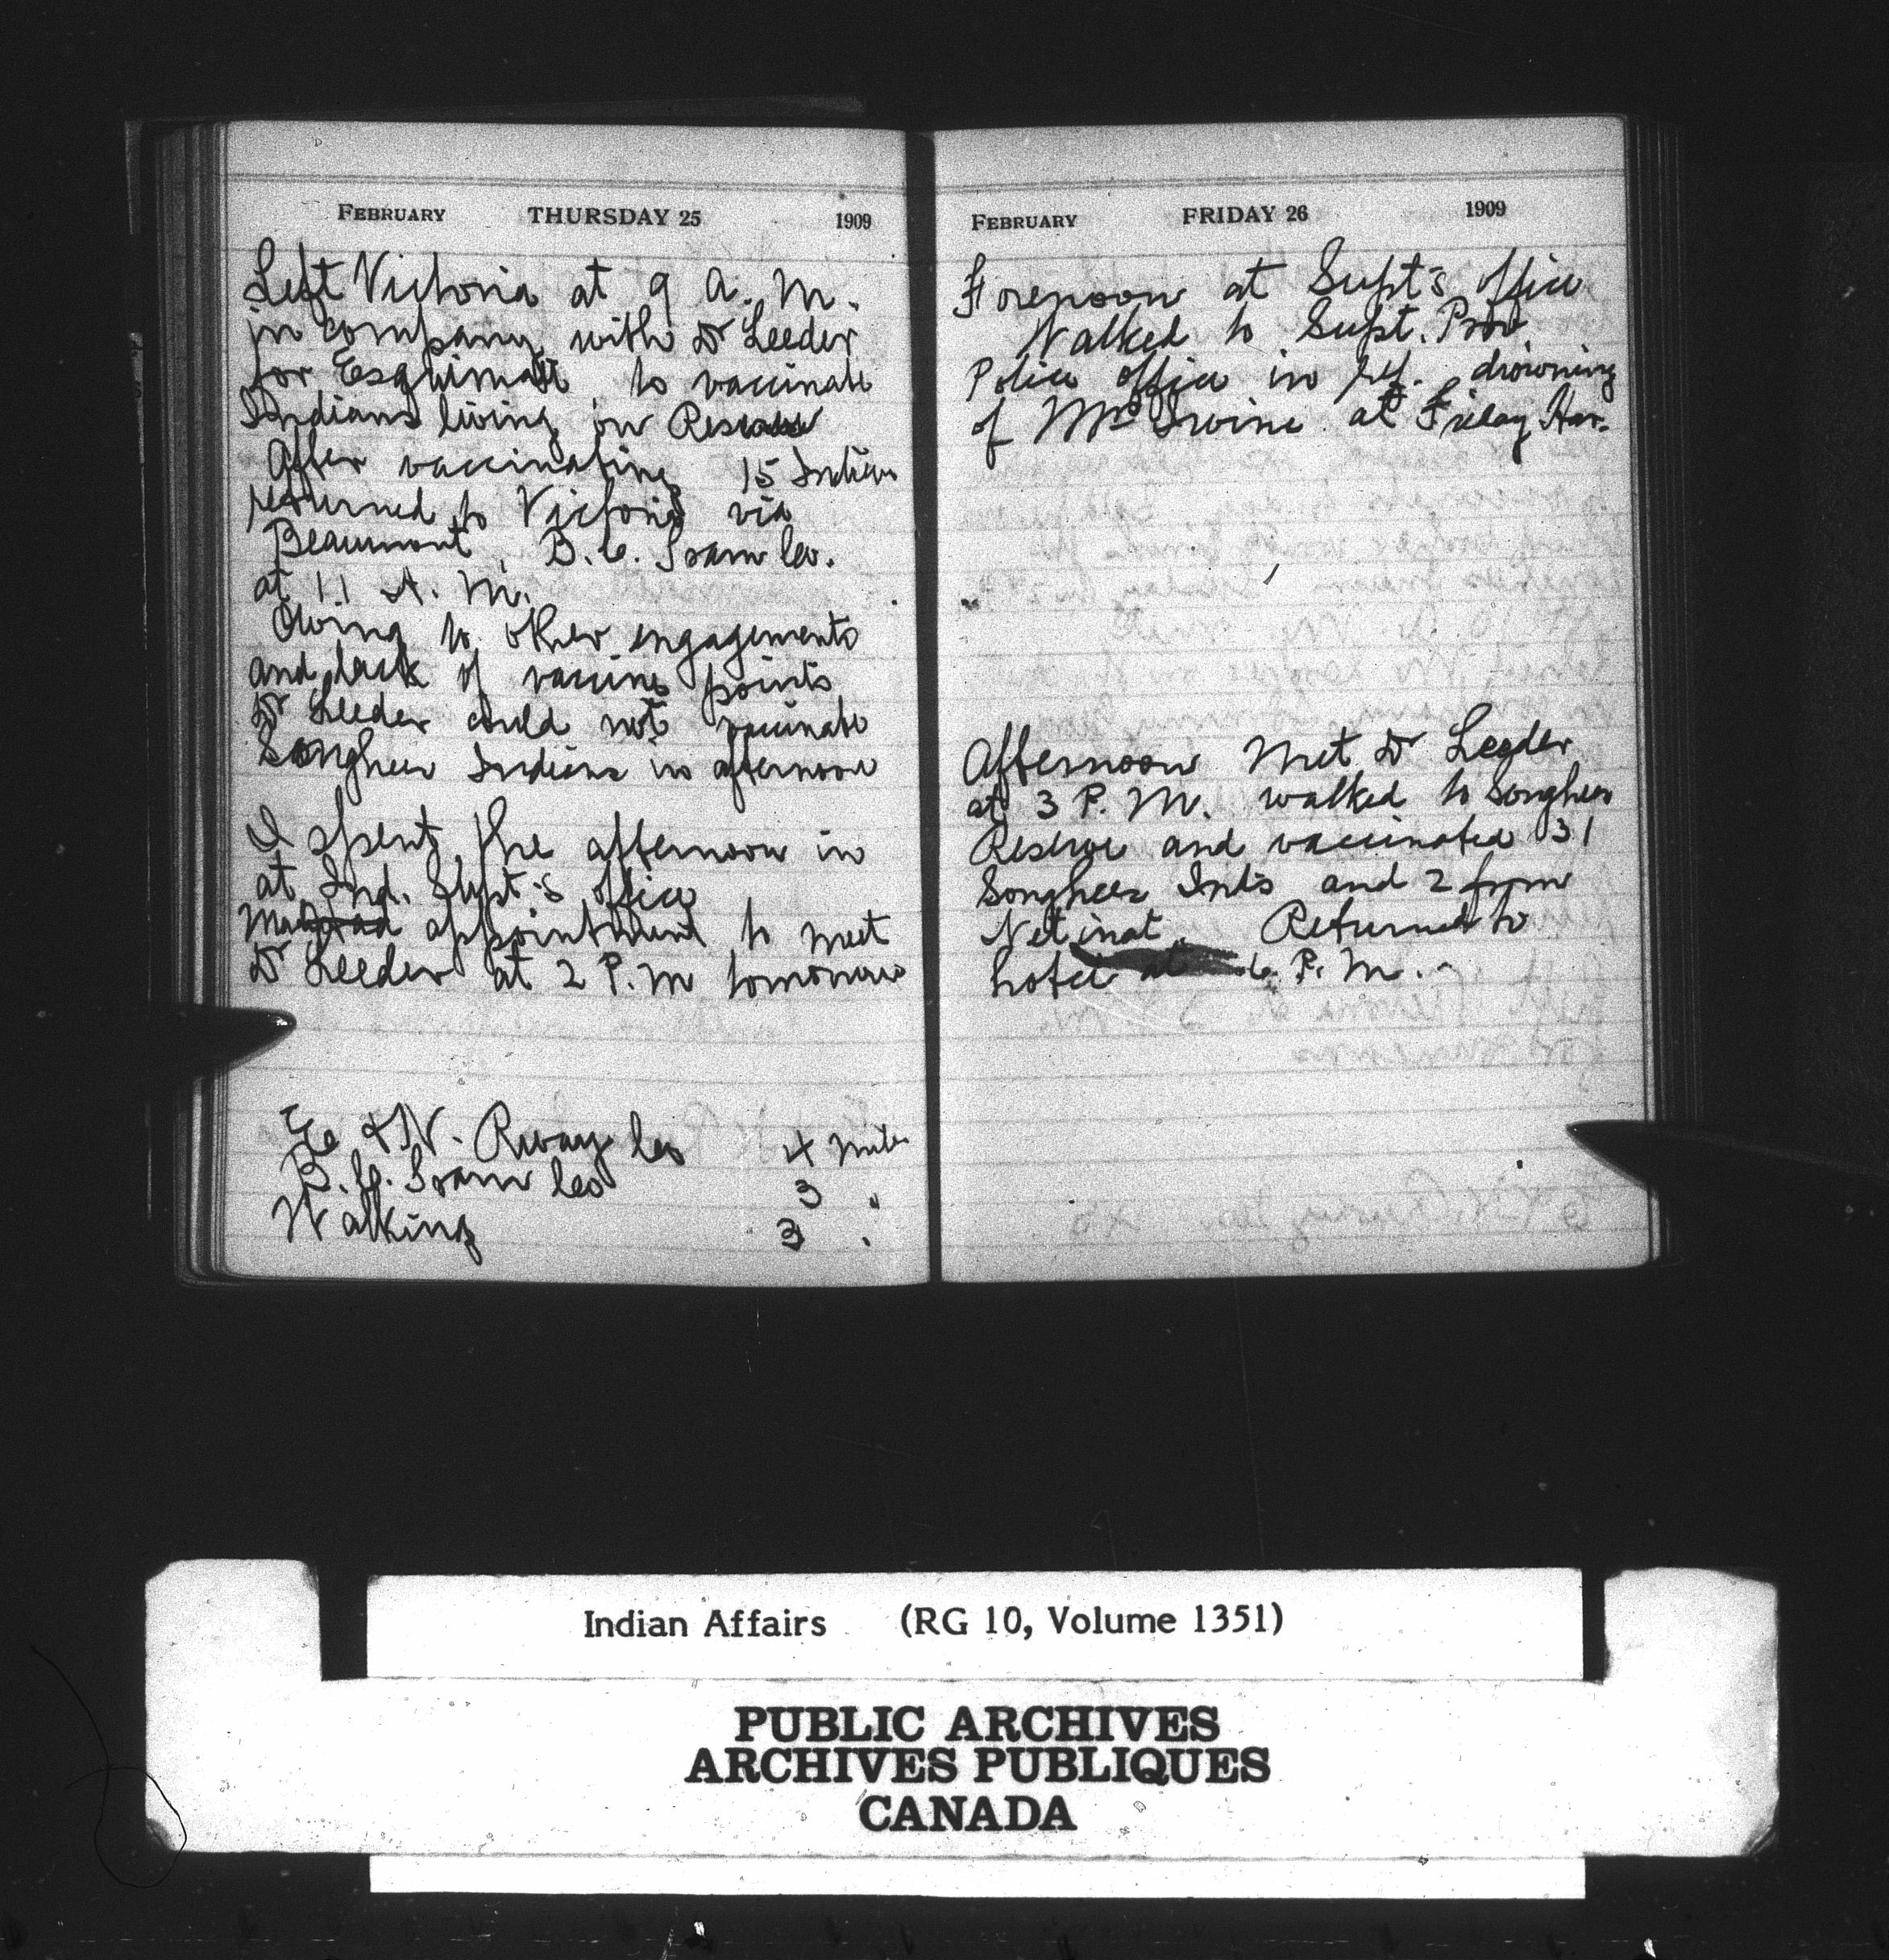 FEBRUARY THURSDAY 25 1909
Left Victoria at 9 A. M.
in company with Dr Leeder
for Esquimalt to vaccinate
Indians living on Reserve
After vaccinating 15 Indians
returned to Victoria via
Beaumont B. C. Tram Co.
at 11 A. M.
Owing to other engagements
and lack of vaccine points
Dr Leeder could not vaccinate
Songhees Indians in afternoon
I spent the afternoon in
at Ind. Supt's office
appointment to meet
Dr Leeder at 2 P. M tomorrow
E &N. Rway Co 4 miles
B. C. Tram Co 3 "
Walking 3 "
FEBRUARY FRIDAY 26 1909
Forenoon at Supt's office
Walked to Supt. Prov
Police office in ref. drowning
of Mrs Irvine at Friday Har-
Afternoon Met Dr Leeder
at 3 P. M. walked to Songhees
Reserve and vaccinated 31
Songhees Inds and 2 from
Netinat. Returned to
hotel at 6 P. M.
Indian Affairs (RG 10, Volume 1351)
PUBLIC ARCHIVES
ARCHIVES PUBLIQUES
CANADA